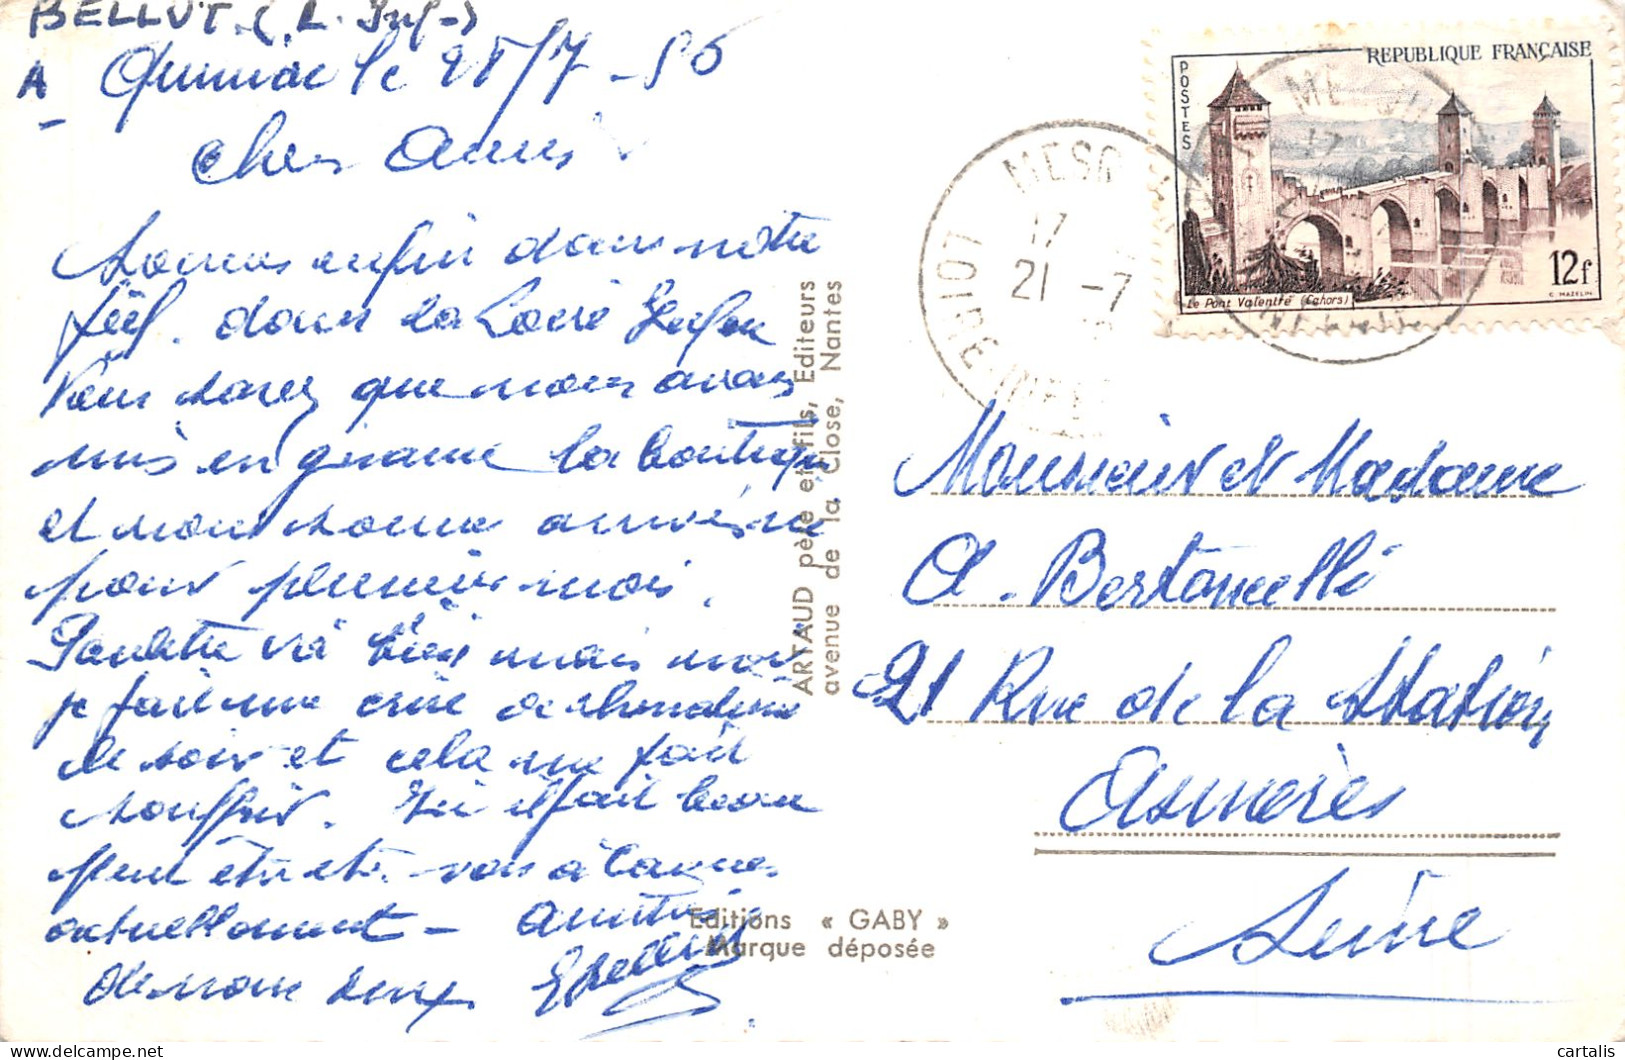 BELLUT. (L. Inf-)
A Quimiac le 28/7 - 56
Chers Amis
Sommes enfin dans notre
fief. dans la Loire Infer
Vous savez que nous avons
mis en gérance la boutique
et nous sommes arrivés ici
pour plusieurs mois.
Paulette va bien mais moi
je fais une crise de rhumatisme
ce soir et cela me fait
souffrir. Ici il fait beau
Peut être êtes-vous à Cannes
actuellement - Amitiés
de nous deux
GBellut
ARTAUD père et fils, Editeurs
avenue de la Close, Nantes
Editions « GABY »
Marque déposée
MESQ
17
21 -7
LOIRE-INFRE
REPUBLIQUE FRANÇAISE
POSTES
12f
Le Pont Valentré (Cahors)
C. MAZELIN
Monsieur et Madame
A. Bertoncelli
21 Rue de la Station
Asnières
Seine
cartalis